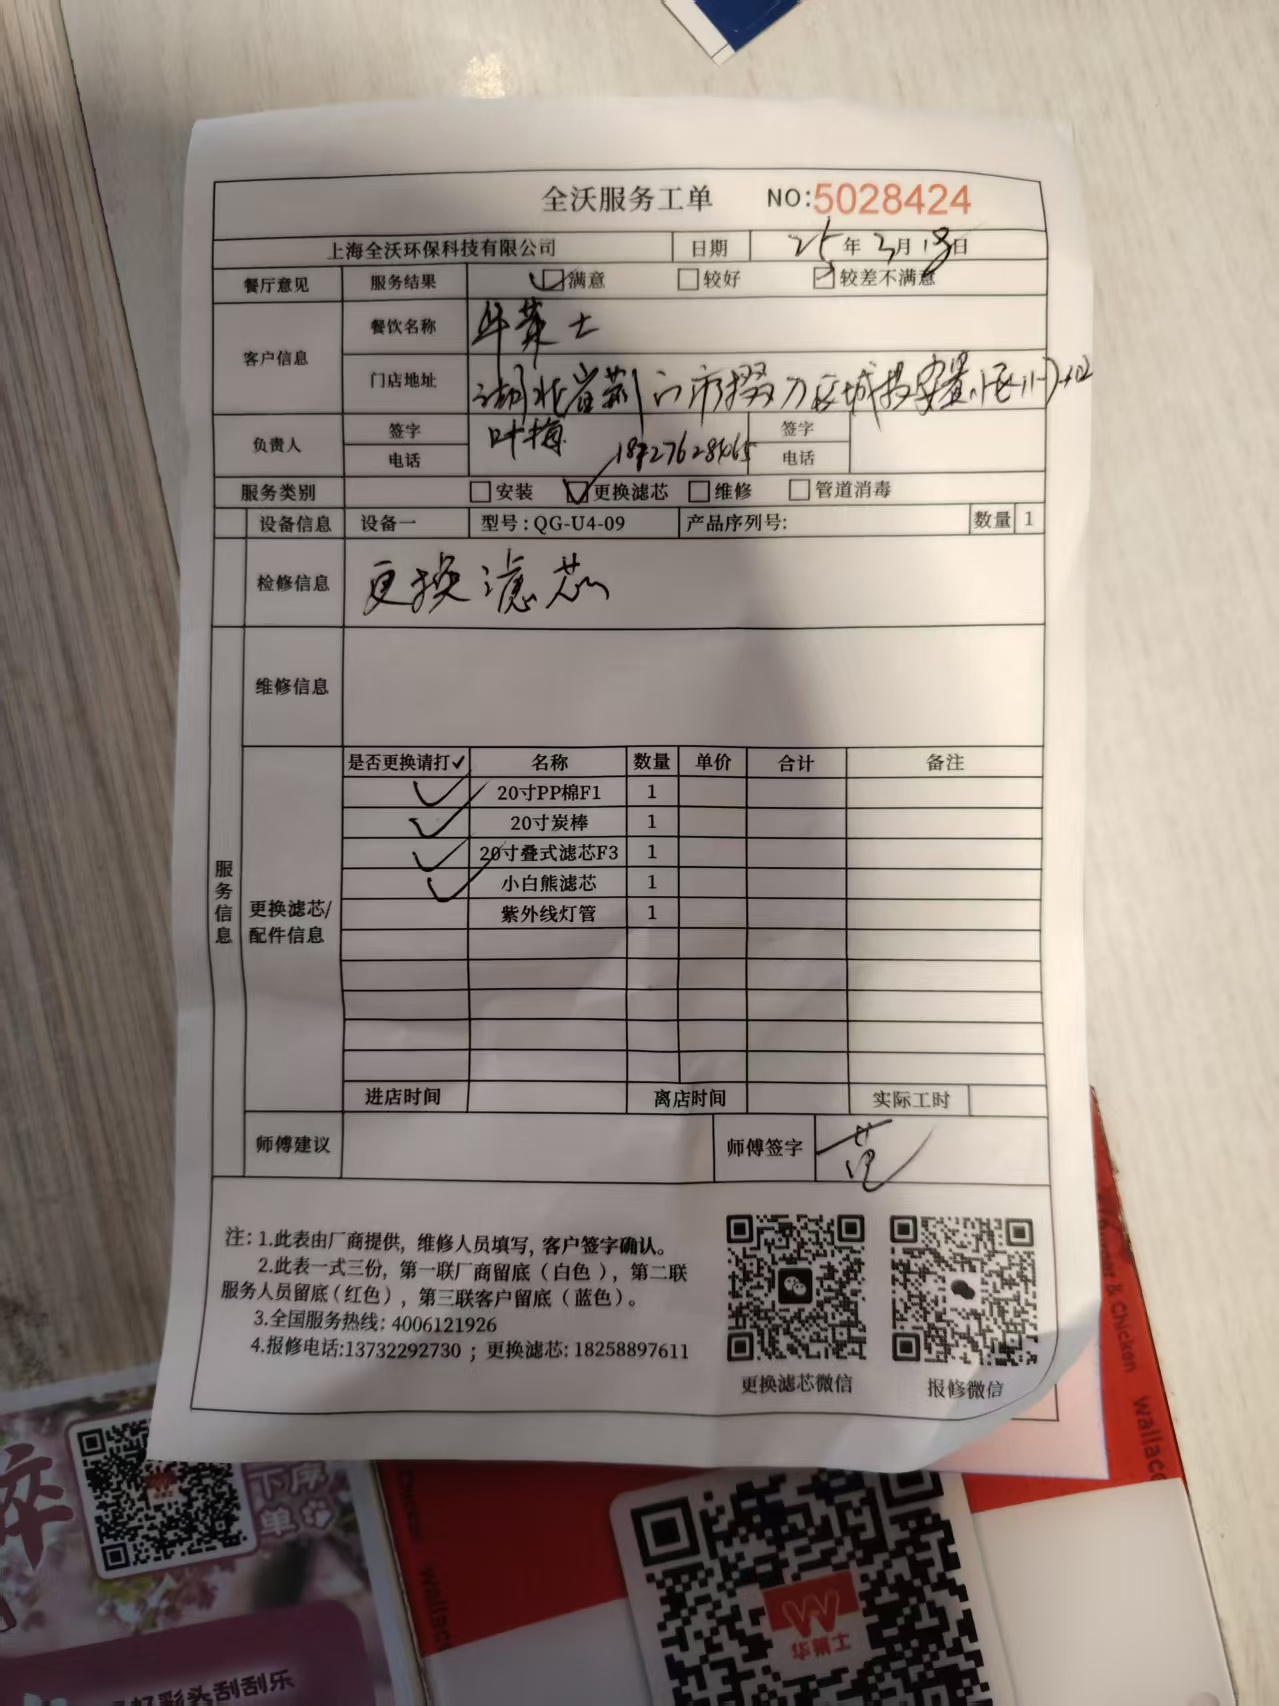 全沃服务工单 NO:5028424
上海全沃环保科技有限公司 日期 25年3月18日
餐厅意见 服务结果 满意 较好 较差不满意
客户信息 餐饮名称 华莱士
门店地址 湖北省荆门市掇刀区城投安置小区
负责人 签字 叶梅 签字
电话 电话
服务类别 安装 更换滤芯 维修 管道消毒
设备信息 设备一 型号:QG-U4-09 产品序列号: 数量 1
检修信息 更换滤芯
维修信息
服务信息
更换滤芯/
配件信息
是否更换请打✓ 名称 数量 单价 合计 备注
✓ 20寸PP棉F1 1
✓ 20寸炭棒 1
✓ 20寸叠式滤芯F3 1
✓ 小白熊滤芯 1
紫外线灯管 1
进店时间 离店时间 实际工时
师傅建议 师傅签字 范
注: 1.此表由厂商提供, 维修人员填写, 客户签字确认。
2.此表一式三份, 第一联厂商留底 ( 白色 ), 第二联
服务人员留底 ( 红色 ) , 第三联客户留底 ( 蓝色 ) 。
3.全国服务热线: 4006121926
4.报修电话:13732292730 ; 更换滤芯: 18258897611
更换滤芯微信 报修微信
& Chicken
wallace
下单
华莱士
彩头刮刮乐